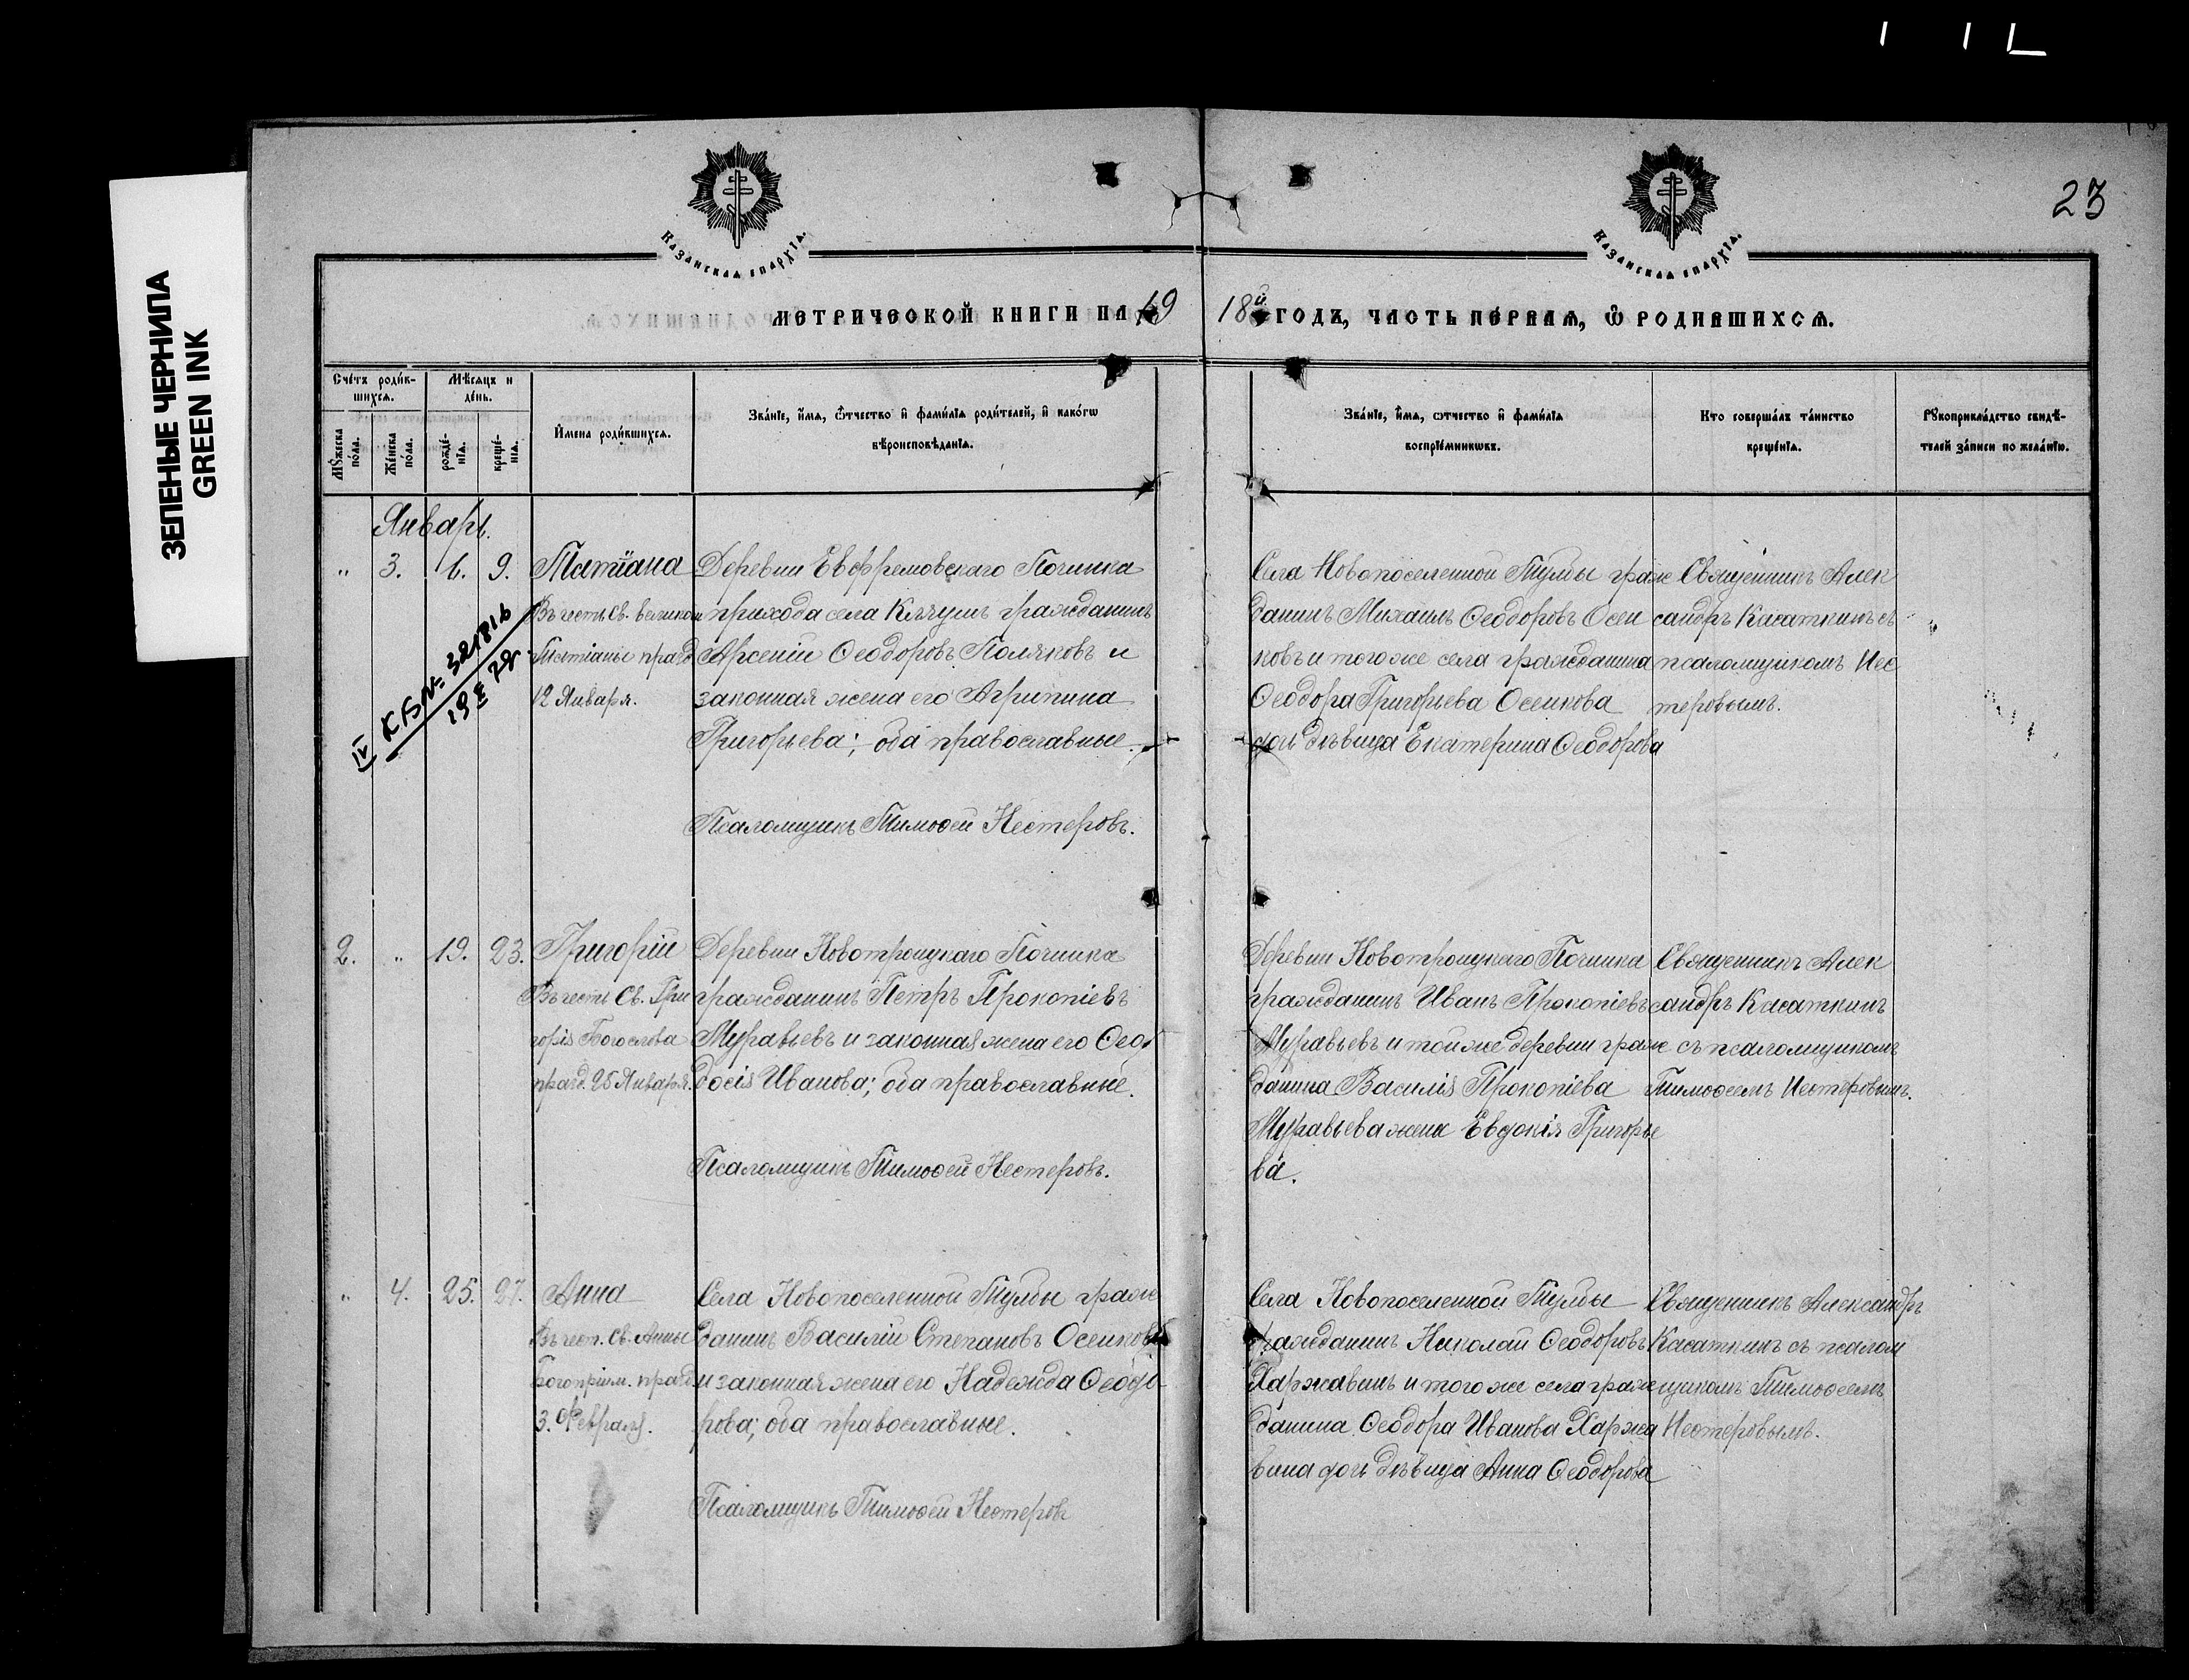 ЗЕЛЕНЫЕ ЧЕРНИЛА
GREEN INK
23
Казанская епархїа.
Казанская епархїа.
МЕТРИЧЕСКОЙ КНИГИ НА 19
18й ГОДЪ, ЧАСТЬ ПЕРВАЯ, Ѽ РОДИВШИХСЯ.
Счетъ родившихся.
Мѣсяцъ и день.
Мꙋжеска пола.
Женска пола.
рожденїя.
крещенїя.
Имена родившихся.
Званїе, имя, ѻтчество и фамилїя родителей, и какогѡ
вѣроисповѣданїя.
Званїе, имя, ѻтчество и фамилїя
воспрїемникѡвъ.
Кто совершалъ таинство
крещенїя.
Рꙋкоприкладство свидѣтелей записи по желанїю.
Январь.
" 3. 6. 9. Татіана
Въ честь Св.
Татіаны празд
12 Января.
Деревни Евфремовскаго Починка
прихода села Клячушъ гражданинъ
Арсеній Ѳеодоровъ Поляковъ и
законная жена его Агрипина
Григорьева; оба православные.
Псаломщикъ Тимоѳей Нестеровъ.
Села Новопоселенной Тумбы граж
данинъ Михаилъ Ѳеодоровъ Осен
ковъ и того же села гражданина
Ѳеодора Григорьева Осенкова
дочь дѣвица Екатерина Ѳеодорова
Священникъ Алек
сандръ Касаткинъ съ
псаломщикомъ Нес
теровымъ.
2. " 19. 23. Григорій
Въ честь Св. Гри
горія Богослова
празд. 25 Января.
Деревни Новотроицкаго Починка
гражданинъ Петръ Прокопіевъ
Муравьевъ и законная жена его Ѳео
досія Иванова; оба православные.
Псаломщикъ Тимоѳей Нестеровъ.
Деревни Новотроицкаго Починка
гражданинъ Иванъ Прокопіевъ
Муравьевъ и той же деревни граж
данина Василія Прокопіева
Муравьева жена Евдокія Григорье
ва.
Священникъ Алек
сандръ Касаткинъ
съ псаломщикомъ
Тимоѳеемъ Нестеровымъ.
" 4. 25. 27. Анна
Въ чест. Св. Анны
Богопріим. празд.
3. Февраля.
Села Новопоселенной Тумбы граж
данинъ Василій Степановъ Осенковъ
и законная жена его Надежда Ѳеодо
рова; оба православные.
Псаломщикъ Тимоѳей Нестеровъ
Села Новопоселенной Тумбы
гражданинъ Николай Ѳеодоровъ
Харжавинъ и того же села граж
данина Ѳеодора Иванова Харжа
вина дочь дѣвица Анна Ѳеодорова
Священникъ Александръ
Касаткинъ съ псалом
щикомъ Тимоѳеемъ
Нестеровымъ.